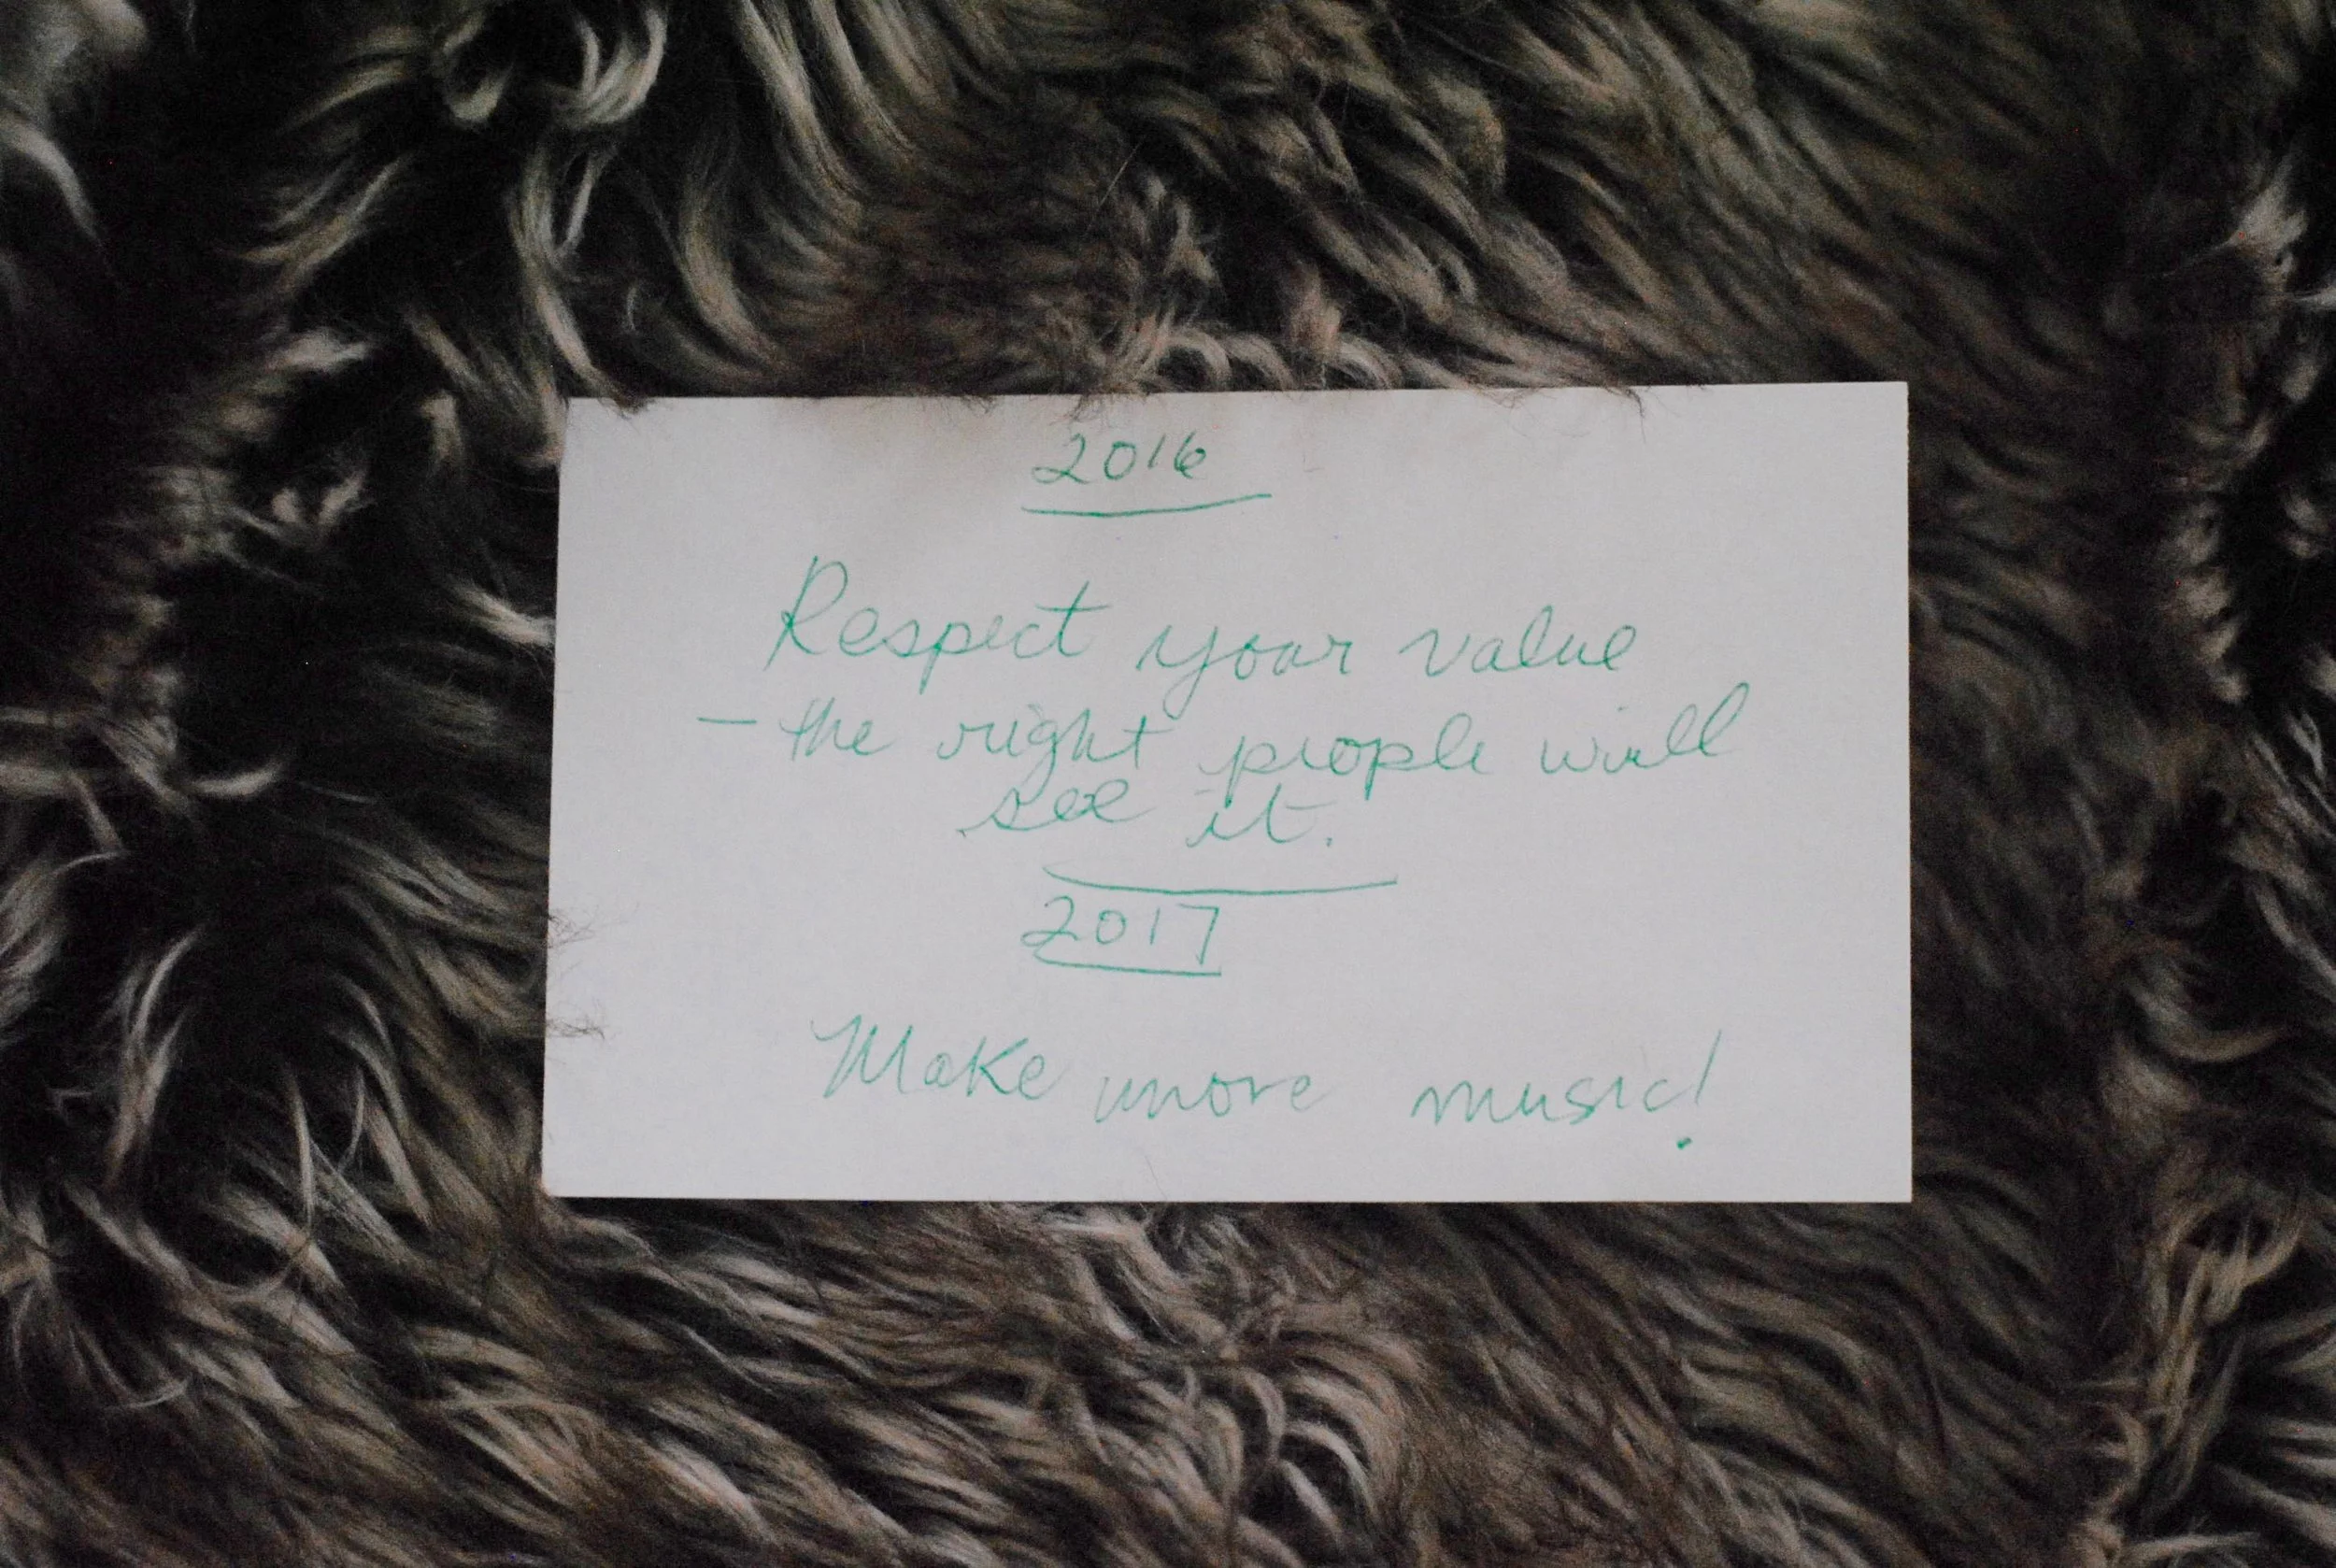 2016
Respect your value
- the right people will
see it.
2017
Make more music!